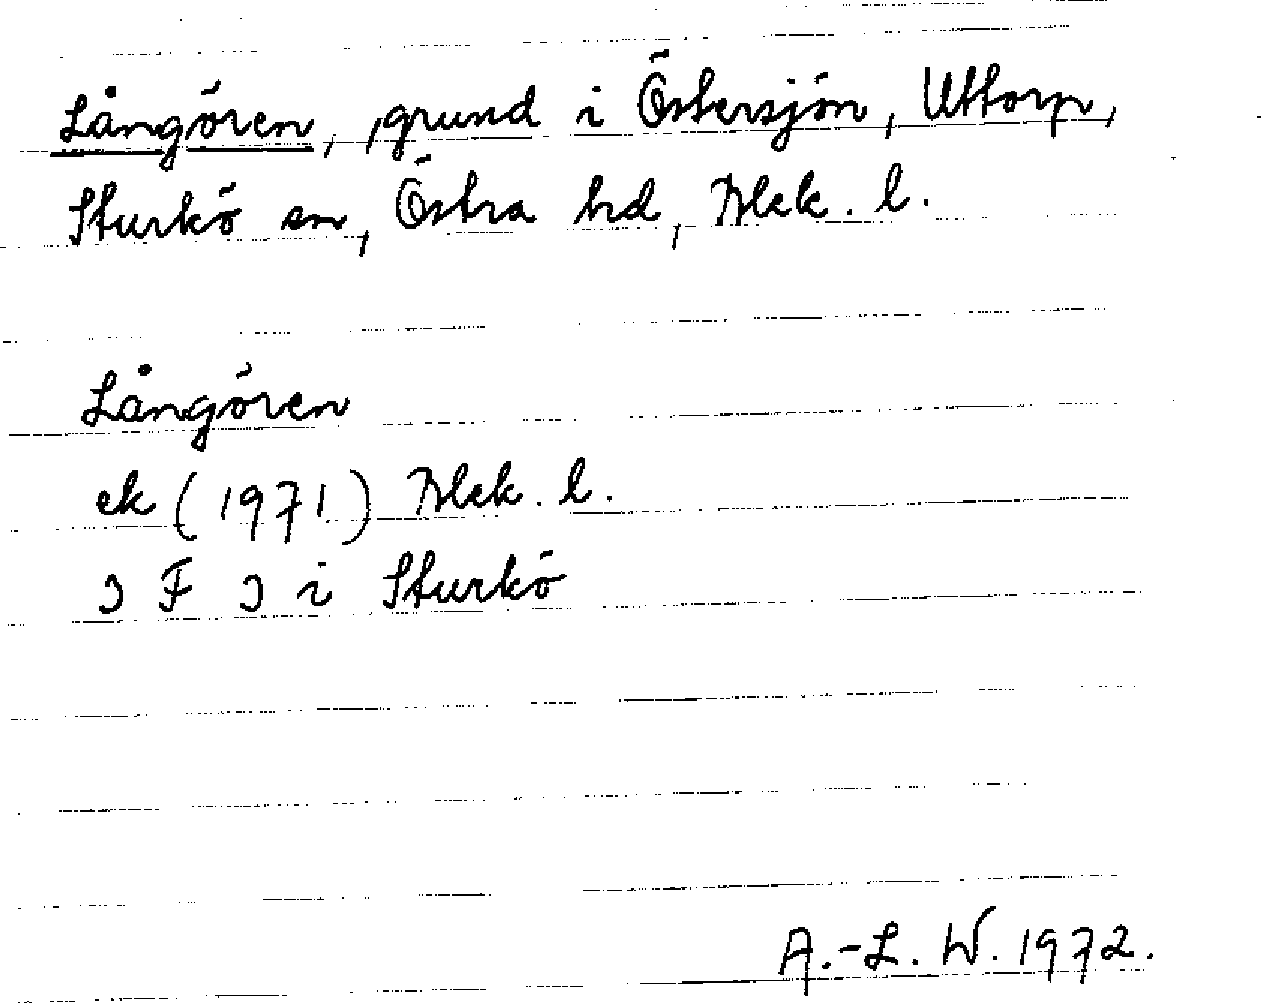 Långören, grund i Östersjön, Uttorp,
Sturkö sn, Östra hd, Blek. l.
Långören
ek (1971) Blek. l.
3 F 3 i Sturkö
A.-L. W. 1972.